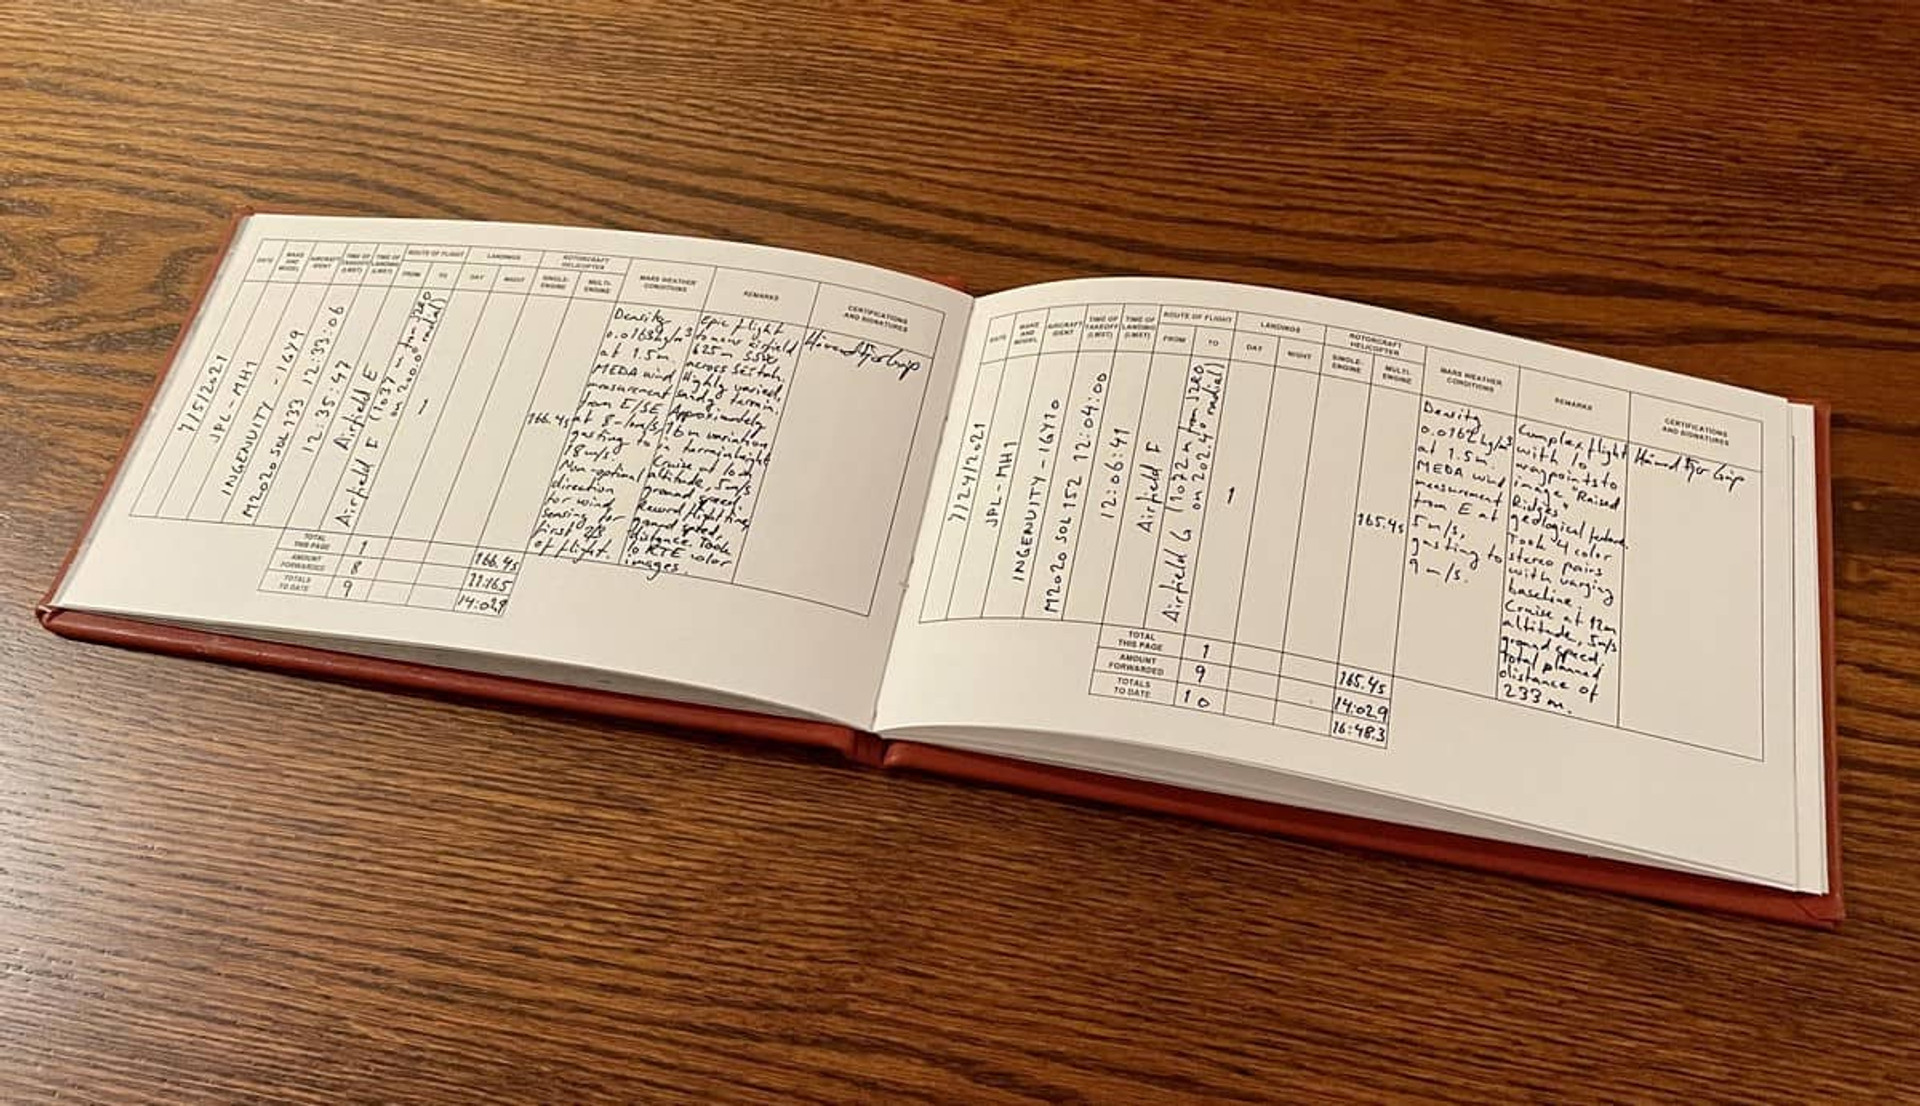 DATE
MAKE
AND
MODEL
AIRCRAFT
IDENT
TIME OF
TAKEOFF
(LMST)
TIME OF
LANDING
(LMST)
ROUTE OF FLIGHT
FROM
TO
LANDINGS
DAY
NIGHT
ROTORCRAFT
HELICOPTER
SINGLE-
ENGINE
MULTI-
ENGINE
MARS WEATHER
CONDITIONS
REMARKS
CERTIFICATIONS
AND SIGNATURES
7/5/2021
JPL - MH1
INGENUITY - 1649
M2020 SOL 133 12:33:06
12:35:47
Airfield E
Airfield F (1037 m from JZRO
on 200.0° radial)
1
166.4s
Density
0.0163kg/m³
at 1.5m.
MEDA wind
measurement
from E/SE
at 8-1om/s
gusting to
18m/s.
Non-optimal
direction
for wind
sensing for
first 2/3
of flight.
Epic flight
to new airfield
625m SSW
across Seitah.
Highly varied,
sandy terrain.
Approximately
16m variation
in terrain height
Cruise at 10m
altitude, 5m/s
ground speed.
Record flight time,
ground speed,
distance. Took
10 RTE color
images.
TOTAL
THIS PAGE
1
166.4s
AMOUNT
FORWARDED
8
11:16.5
TOTALS
TO DATE
9
14:02.9
DATE
MAKE
AND
MODEL
AIRCRAFT
IDENT
TIME OF
TAKEOFF
(LMST)
TIME OF
LANDING
(LMST)
ROUTE OF FLIGHT
FROM
TO
LANDINGS
DAY
NIGHT
ROTORCRAFT
HELICOPTER
SINGLE-
ENGINE
MULTI-
ENGINE
MARS WEATHER
CONDITIONS
REMARKS
CERTIFICATIONS
AND SIGNATURES
7/24/2021
JPL - MH1
INGENUITY - 16410
M2020 SOL 152 12:04:00
12:06:41
Airfield F
Airfield G (1072 m from JZRO
on 202.4° radial)
1
165.4s
Density
0.0162kg/m³
at 1.5m.
MEDA wind
measurement
from E at
5m/s,
gusting to
9m/s.
Complex flight
with 10
waypoints to
image "Raised
Ridges"
geological feature.
Took 4 color
stereo pairs
with varying
baseline;
Cruise at 12m
altitude, 5m/s
ground speed,
total planned
distance of
233m.
TOTAL
THIS PAGE
1
165.4s
AMOUNT
FORWARDED
9
14:02.9
TOTALS
TO DATE
10
16:48.3